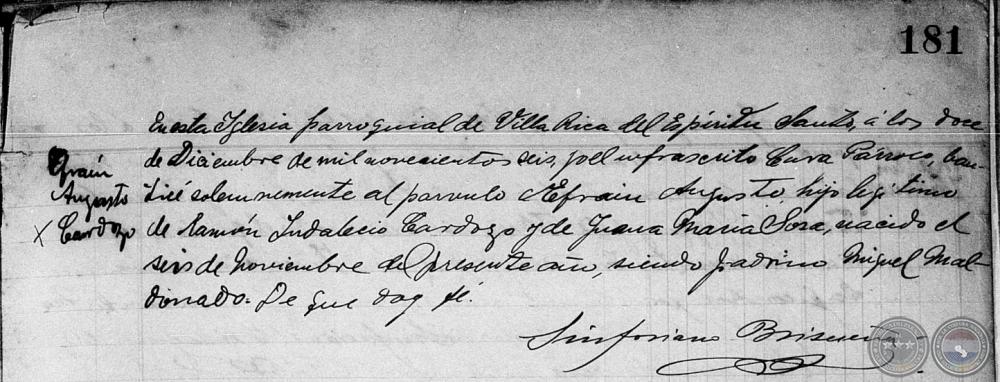 181
En esta Iglesia parroquial de Villa Rica del Espíritu Santo, á los doce
de Diciembre de mil novecientos seis, yo el infrascrito Cura Párroco, bau-
ticé solemnemente al parvulo Efrain Augusto, hijo legítimo
de Ramón Indalecio Cardozo y de Juana Maria Sosa, nacido el
seis de Noviembre del presente año, siendo padrino Miguel Mal-
donado. De que doy fé.
Sinforiano
Efraín
Augusto
X Cardozo